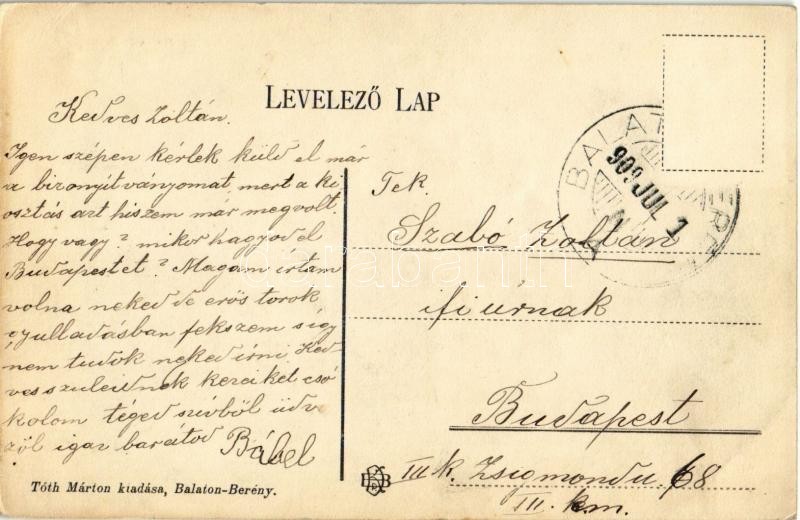 LEVELEZŐ LAP
Kedves Zoltán.
Igen szépen kérlek küld el már
a bizonyítványomat, mert a ki
osztás azt hiszem már megvolt.
Hogy vagy? mikor hagyod el
Budapestet? Magam írtam
volna neked de erős torok
gyulladásban fekszem s így
nem tudok neked írni. Ked
ves szuleidnek kezeiket csó
kolom téged szívből üdv
zöl igaz barátod Bábel
Tóth Márton kiadása, Balaton-Berény.
Tek.
Szabó Zoltán
fiúrnak
Budapest
III k. Zsigmond u 68
III. k.m.
BALAT
909 JUL 1